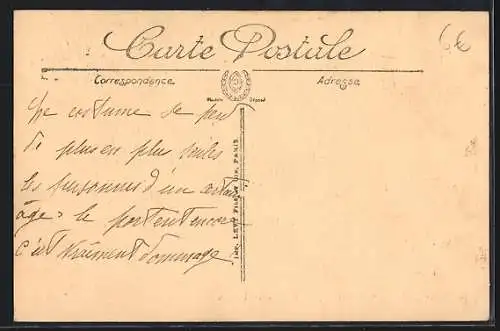 Carte Postale
6€
Correspondance
Adresse
Modèle Déposé
Ce costume se perd
de plus en plus seules
les personnes d'un certain
âge le portent encore
c'est vraiment dommage
IMP. LEVY FILS ET CIE, PARIS